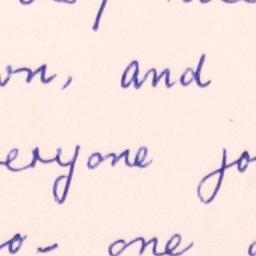 on, and
eryone jo
o- one